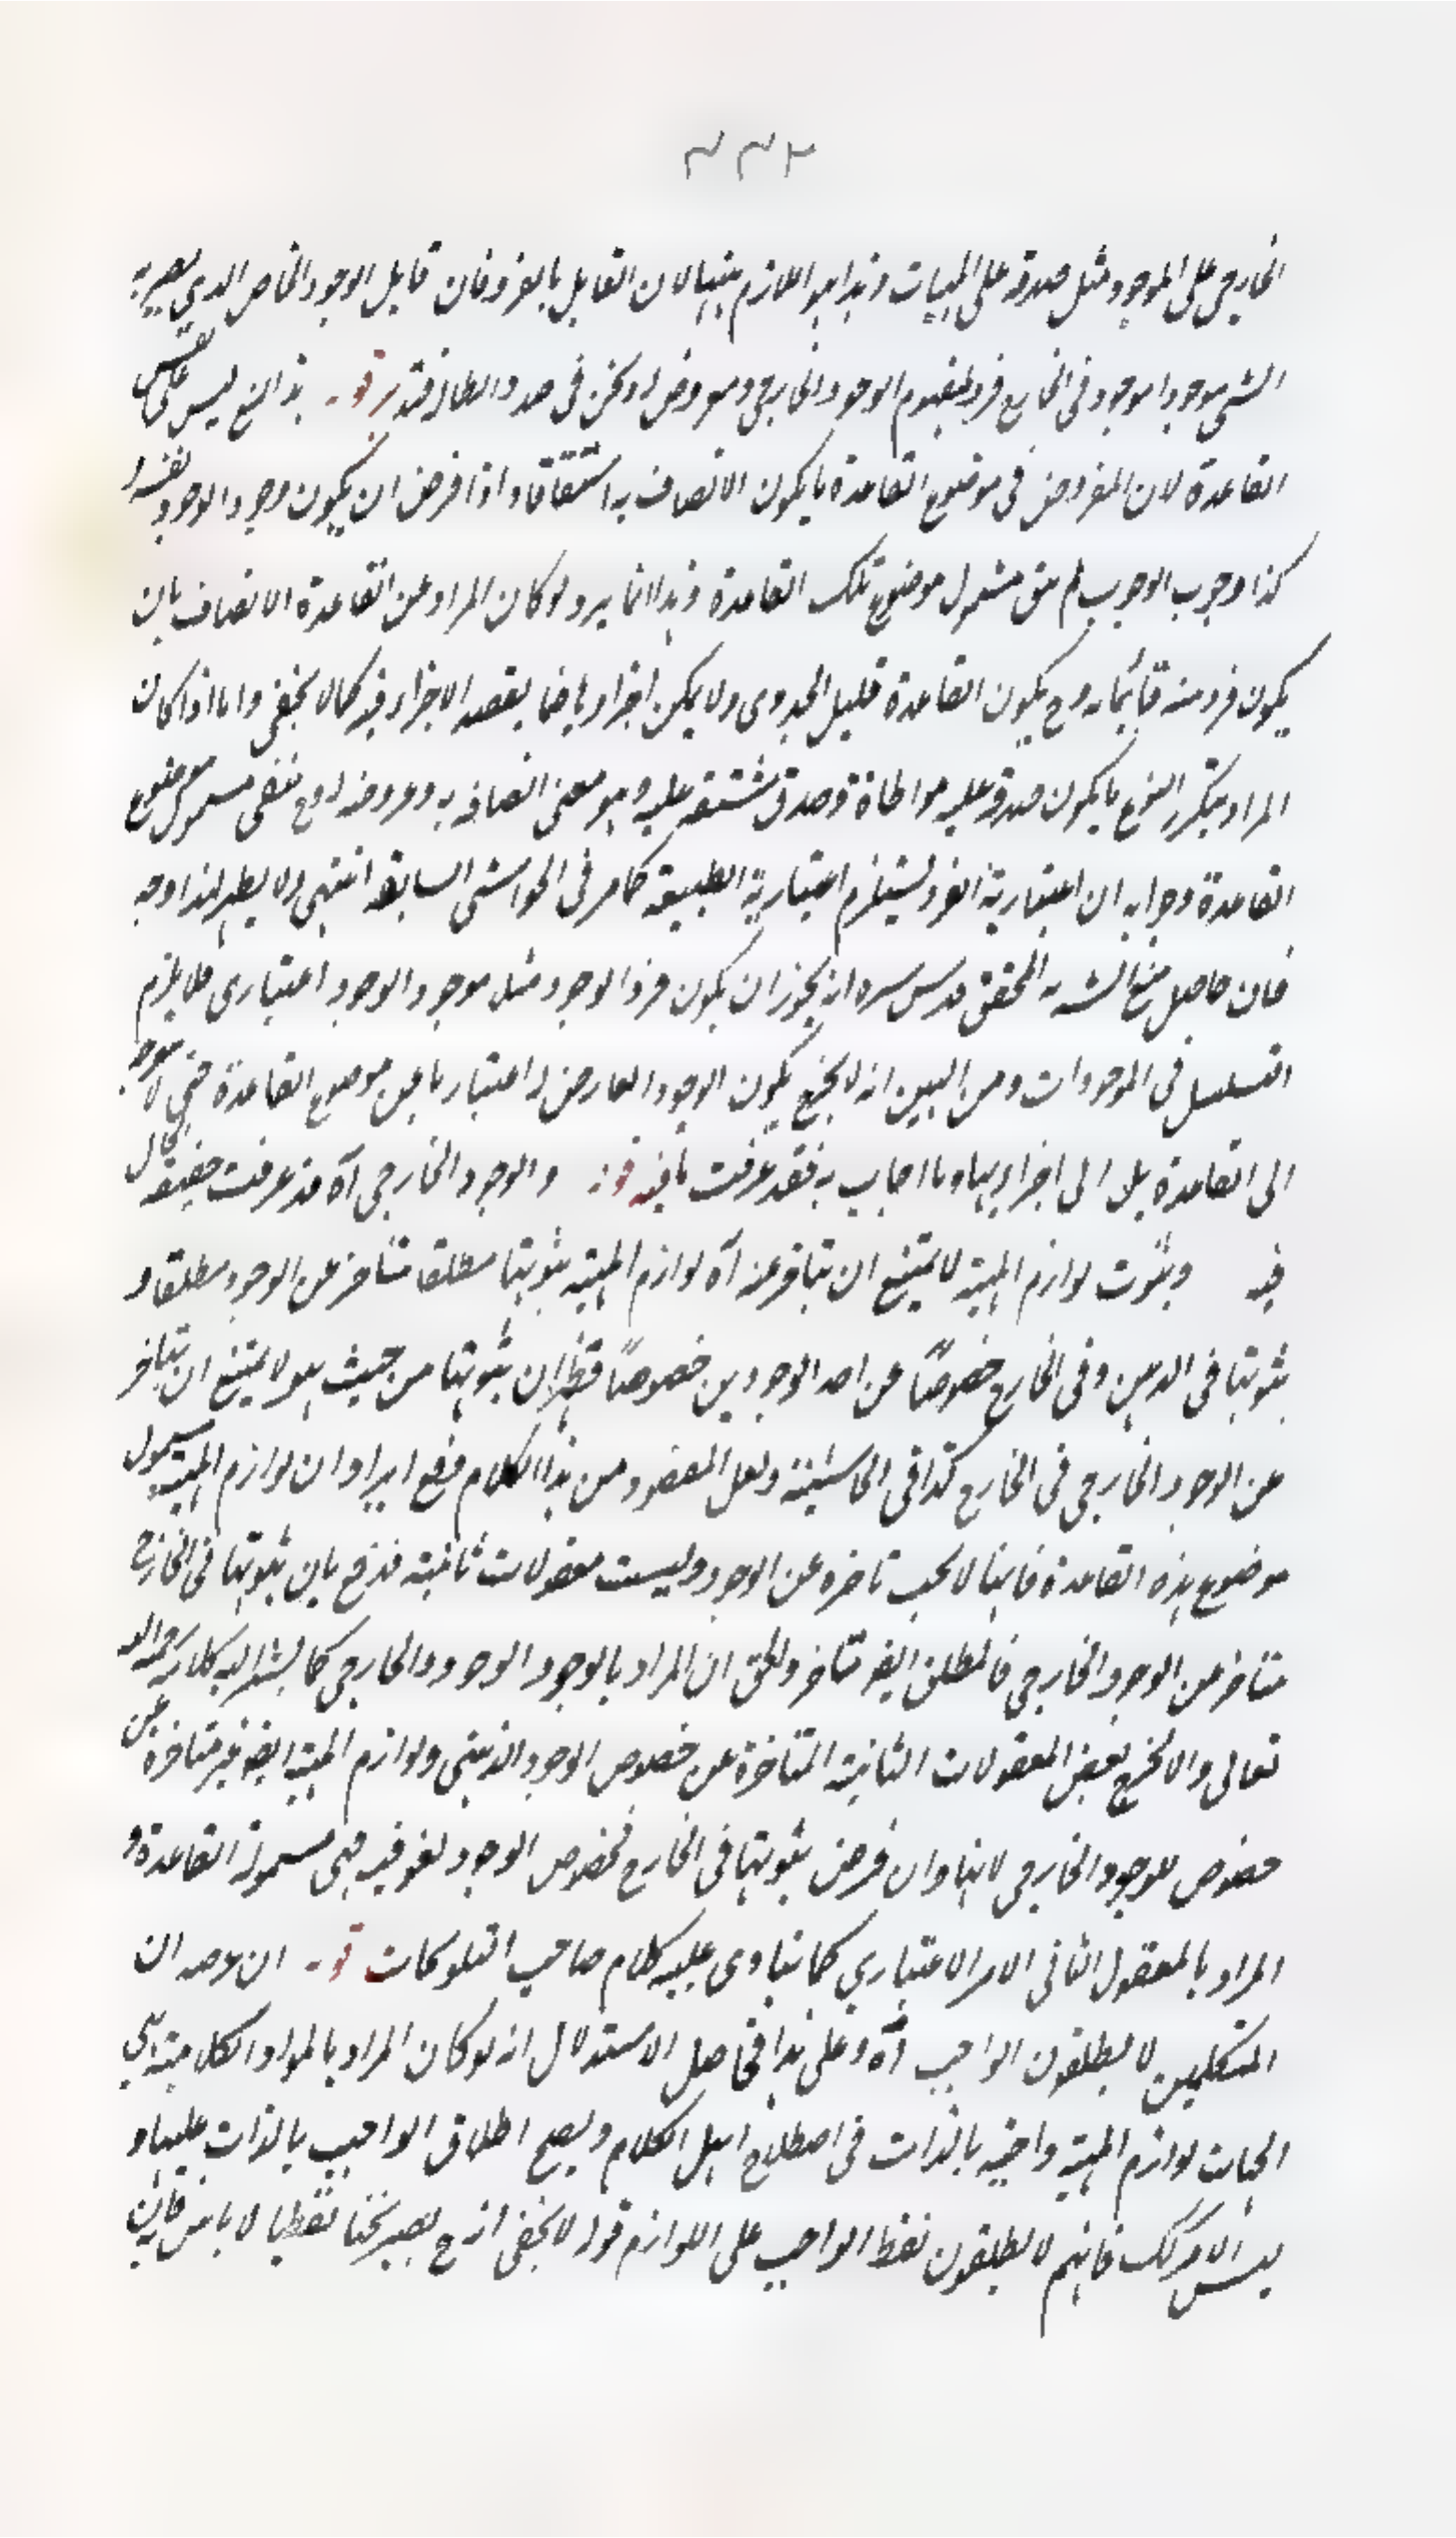 ٢٣٣
الخارجي على الموجود مثل صدقه على المهيات وهذا هو اللازم بينها لان القابل بالفرد فان قابل الوجود الخاص الذي يصير به
الشي موجودا موجود في الخارج فرد لمفهوم الوجود الخارجي ومعروض له وكفى في صدد ابطاله فتدبر قوله هذا المنع ليس على نفس
القاعدة لان المفروض في موضوع القاعدة ما يكون الاتصاف به اشتقاقا واذا فرض ان يكون وجود الوجود نفسه و
كذا وجوب الوجوب لم يبق مشمول موضوع تلك القاعدة وهذا انما يرد لو كان المراد من القاعدة الاتصاف بان
يكون فرد منه قائما به وح يكون القاعدة قليل الجدوى ولا يمكن اجراؤها فيما يقصد الاجراء فيه كما لا يخفى واما اذا كان
المراد بتكرر النوع ما يكون صدقه عليه مواطاة وصدق مشتقه عليه وهو معنى اتصافه به وعروضه له وح فنفى مشمول موضوع
القاعدة وجوابه ان اعتبارية الفرد يستلزم اعتبارية الطبيعة كما مر في الحواشي السابقة انتهى ولا يظهر لهذا وجه
فان حاصل منع الشه به المحقق قدس سره انه يجوز ان يكون فرد الوجود مثله موجود الوجود اعتباري فلا يلزم
التسلسل في الموجودات ومن البين انه لا يخرج بكون الوجود العارض له اعتباريا عن موضوع القاعدة حتى لا توجه
الى القاعدة بل الى اجرائها وما اجاب به فقد عرفت ما فيه قوله والوجود الخارجي آه قد عرفت حقيقة الحال
فيه وثبوت لوازم المهية لا يمتنع ان يتاخر عنه آه لوازم المهية ثبوتها مطلقا متأخر عن الوجود مطلقا و
ثبوتها في الذهن وفي الخارج خصوصًا عن احد الوجودين خصوصًا فظهر ان ثبوتها من حيث هو لا يمتنع ان يتاخر
عن الوجود الخارجي في الخارج كذا في الحاشية ولعل المقصود من هذا الكلام دفع ايراد ان لوازم المهية مشمول
موضوع هذه القاعدة فانها لا يجب تاخره عن الوجود وليست معقولات ثانية فدفع بان ثبوتها في الخارج
متاخر عن الوجود الخارجي فالمطلق ايضر متاخر والحق ان المراد بالوجود الوجود والخارجي كما يشير اليه كلامه رحمه الله
تعالى والا لخرج بعض المعقولات الثانية المتاخرة عن خصوص الوجود الذهني ولوازم المهية ايضر غير متاخرة عن
خصوص الوجود الخارجي لانها وان فرض ثبوتها في الخارج فخصوص الوجود لغو فيه فهي مشمولة القاعدة و
المراد بالمعقول الثاني الامر الاعتباري كما ينادى عليه كلام صاحب التلويحات قوله ان وجه ان
المتكلمين لا يطلقون الواجب آه وعلى هذا فحاصل الاستدلال انه لو كان المراد بالمواد الكلامية هي
الجهات لوازم المهية واجبة بالذات في اصطلاح اهل الكلام ويصح اطلاق الواجب بالذات عليها و
ليس الامر كك فانهم لا يطلقون لفظ الواجب على اللوازم قوله لا يخفى انه ح يصير بحثا لفظيا لا باس فان